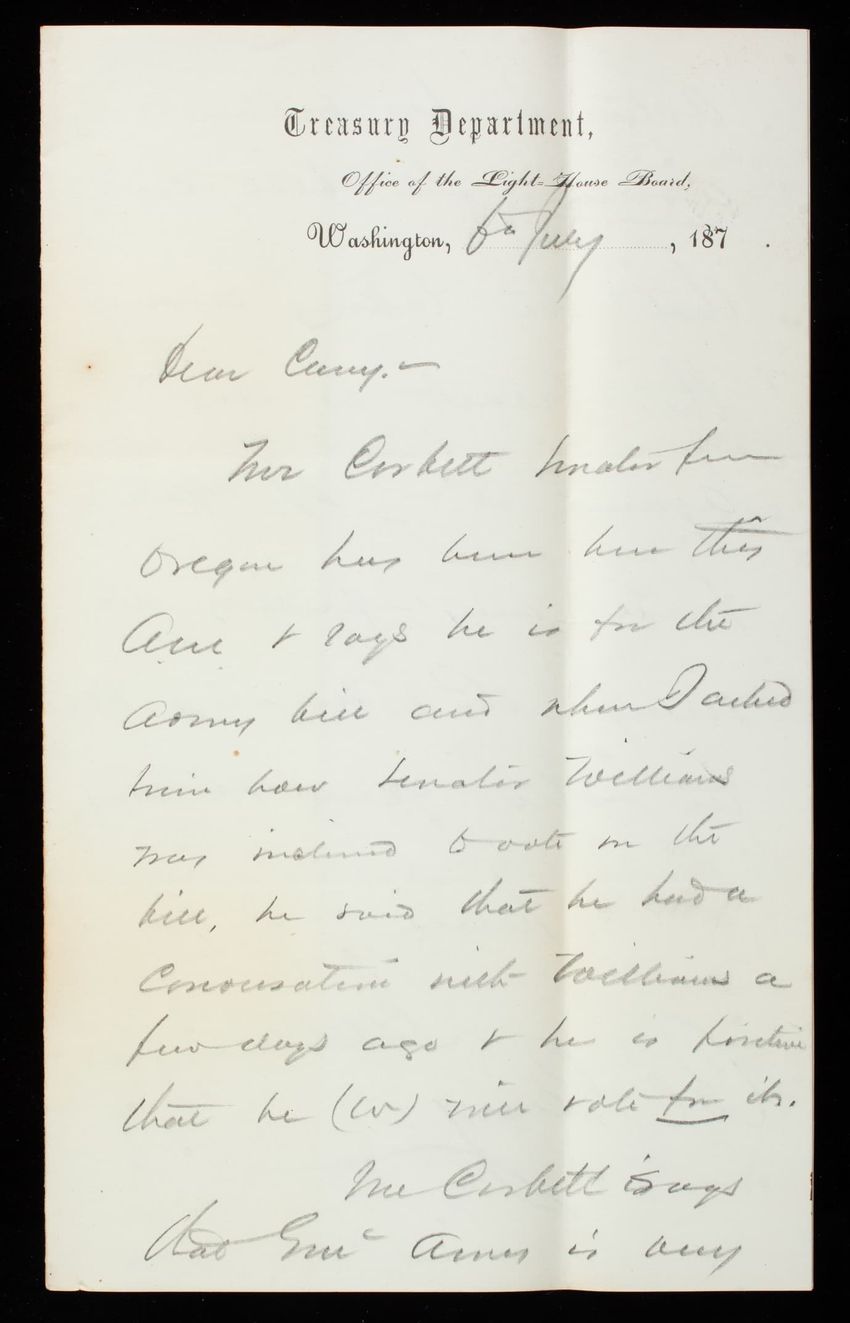 Treasury Department,
Office of the Light-House Board,
Washington, 6th July, 187 .
Dear Casey.-
Mr Corbett Senator from
Oregon has been here this
A.M. & says he is for the
Army bill and when I asked
him how Senator Williams
was inclined to vote on the
bill, he said that he had a
Conversation with Williams a
few days ago & he is positive
that he (W) will vote for it.
Mr Corbett says
that Genl Ames is very